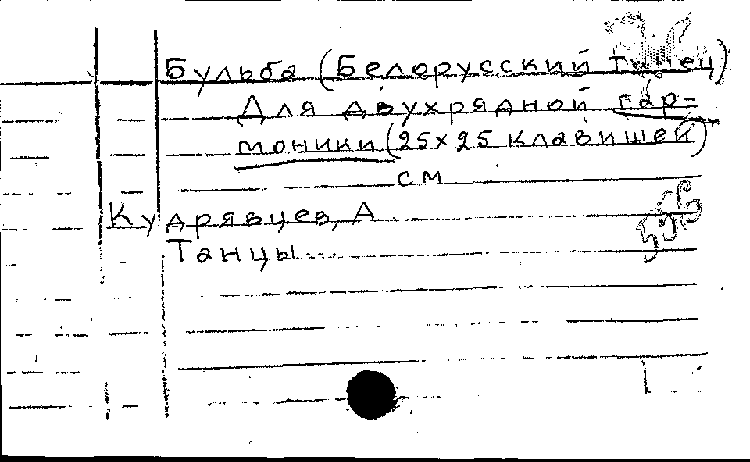 Бульба (Белорусский танец)
Для двухрядной гар-
моники (25х25 клавишей)
см
Кудрявцев, А
Танцы